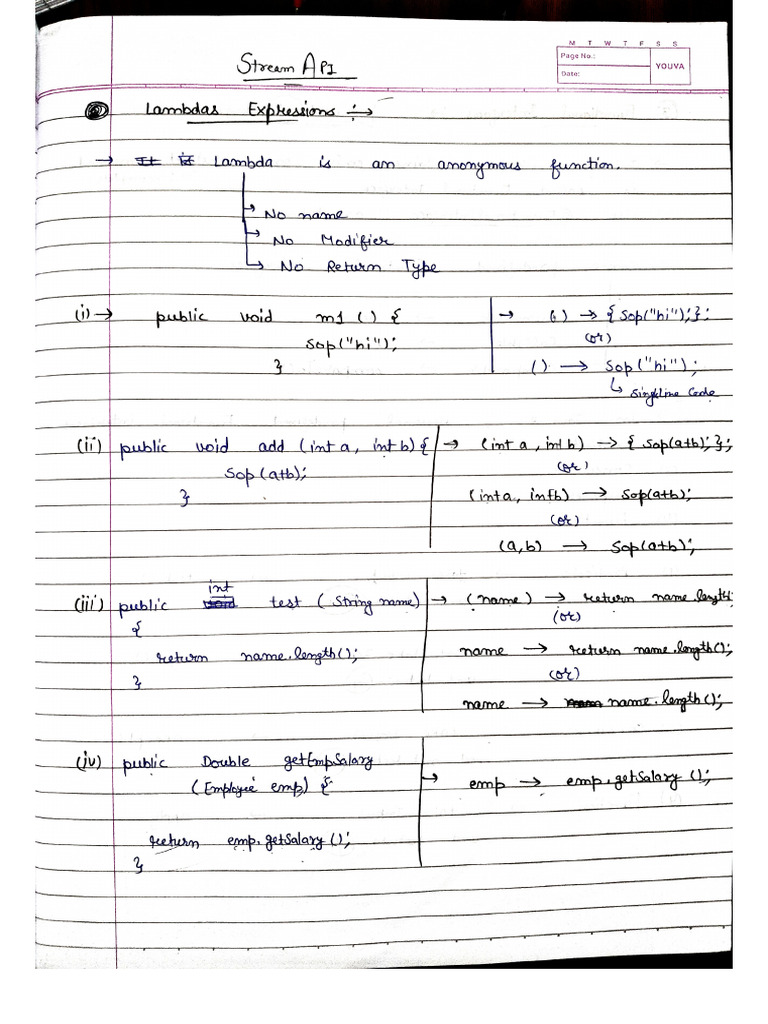 M T W T F S S
Page No.:
Date:
YOUVA
Stream API
Lambdas Expressions :→
→ Lambda is an anonymous function.
→ No name
→ No Modifier
→ No Return Type
(i) → public void m1 () {
Sop("hi");
}
→ () → { Sop("hi"); };
(or)
() → Sop("hi");
↳ Singleline Code
(ii) public void add (int a, int b) {
Sop(a+b);
}
→ (int a, int b) → { Sop(a+b); };
(or)
(int a, int b) → Sop(a+b);
(or)
(a,b) → Sop(a+b);
(iii) public int test ( String name)
{
return name.length();
}
→ (name) → return name.length
(or)
name → return name.length();
(or)
name → name.length();
(iv) public Double getEmpSalary
(Employee emp) {
return emp.getSalary ();
}
→ emp → emp.getSalary ();